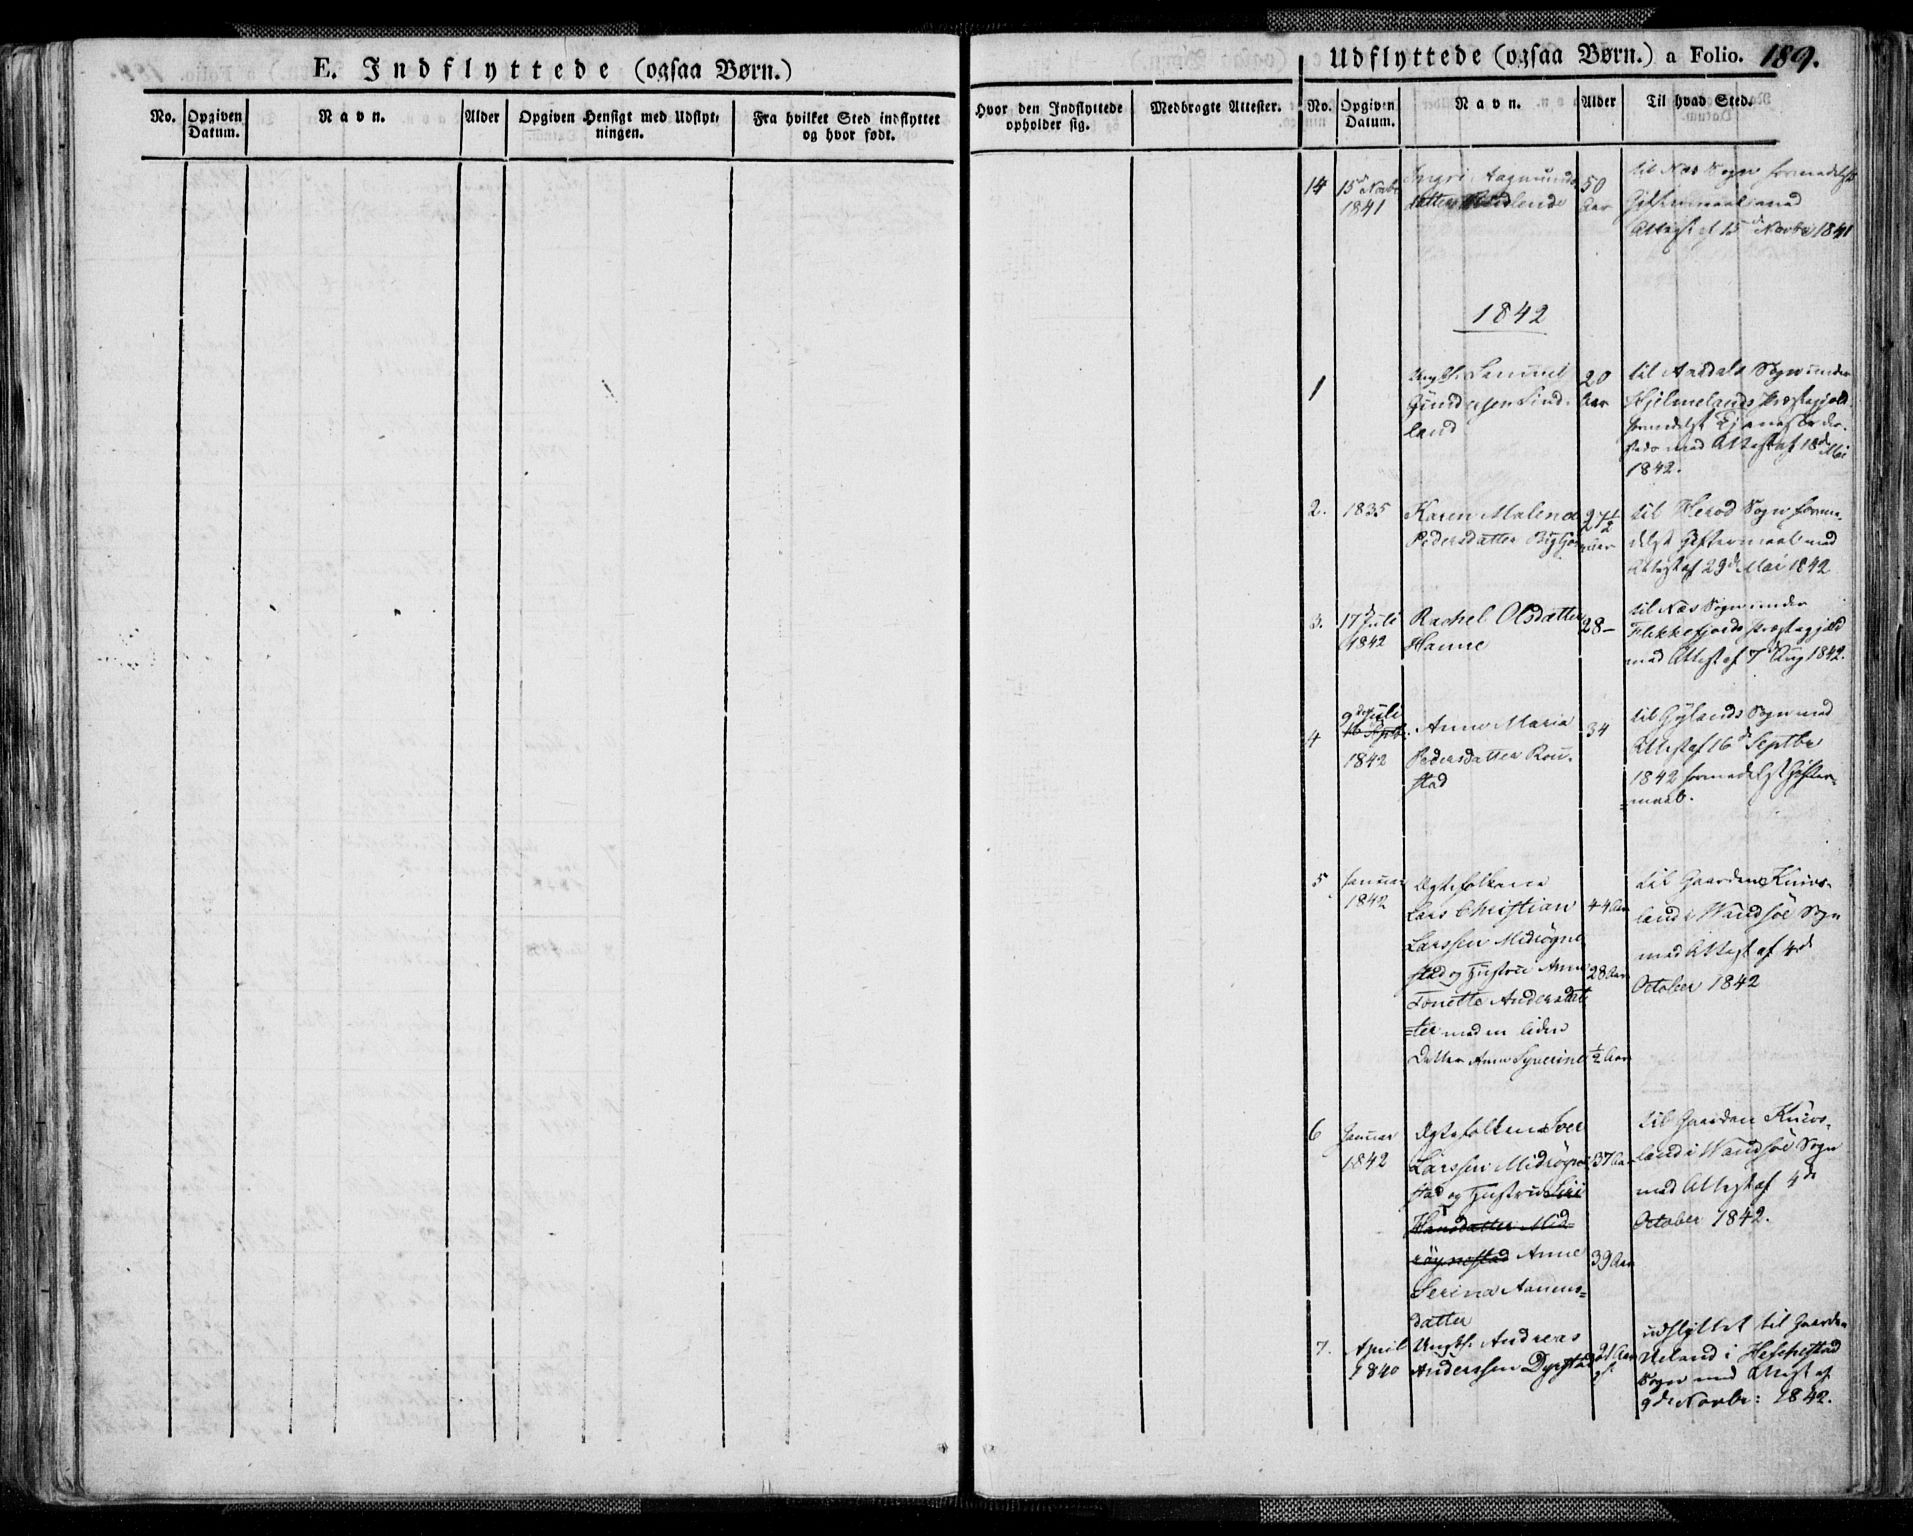 E. Indflyttede (ogsaa Børn.)
No.
Opgiven Datum.
Navn.
Alder
Opgiven Hensigt med Udflyt-
ningen.
Fra hvilket Sted indflyttet
og hvor født.
Hvor den Indflyttede
opholder sig.
Medbragte Attester.
Udflyttede (ogsaa Børn.) a Folio. 189.
No.
Opgiven Datum.
Navn.
Alder
Til hvad Sted.
14 15d Novbr 1841
Ingri Aagmunds-
datter
50 Aar
til Næs Sogn formedelst
Giftermaal med
Attest af 15d Novbr 1841
1842
1
Ungk. Samuel
land
20 Aar
til Aardals Sogn under
Hjelmelands Præstegjeld
formedelst
med Attest af 18d Mai
1842.
2. 1835
Karen Malene
Pedersdatter
27½ Aar
til Sogn forme-
delst Giftermaal med
Attest af 29d Mai 1842
3. 17d Juli 1842
Rachel Olsdatter
Hamre
28-
til Næs Sogn under
Flekkefjords Præstegjeld
med Attest af 7d Aug 1842.
4 9de Juli 1842
Anne Maria
Pedersdatter Røu-
stad
34
til Gylands Sogn med
Attest af 16d Septbr
1842 formedelst Gifter-
=maal.
5 Januar 1842
Ægtefolkene
Lars Christian
Larssen Midrögne-
stad og Hustrue Anne
Tonette Andersdat-
=ter med en liden
Datter Anne Syverine
44 Aar
28 Aar
½ Aar
til Gaarden Knivs-
land i Wandsöe Sogn
med Attest af 4de
October 1842
6 Januar 1842
Ægtefolkene Iver
Larssen Midrögne-
stad og Hustrue Siri
Hansdatter Mid-
röynestad Anne
Serina Aanens-
datter
37 Aar
39 Aar
til Gaarden Knivs-
land i Wandsöe Sogn
med Attest af 4de
October 1842.
7. April 1840
Ungk. Andreas
Anderssen Dyrstad
udflyttet til Gaarden
Ueland i Heskestad
Sogn med Attest af
9de Novbr: 1842.